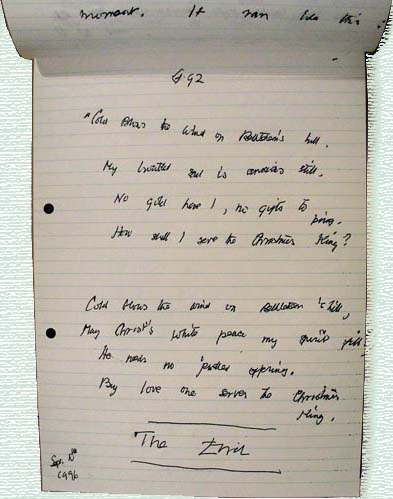 moment. It ran like this.
G.92
"Cold blows the wind on Bethlehem's hill.
My troubled soul is anxious still.
No gold have I, no gifts to bring.
How shall I serve the Christmas King?
Cold blows the wind on Bethlehem's hill,
May Christ's white peace my spirit fill
He needs no further offering.
By love one serves the Christmas
King.
The End
Sep.
1996